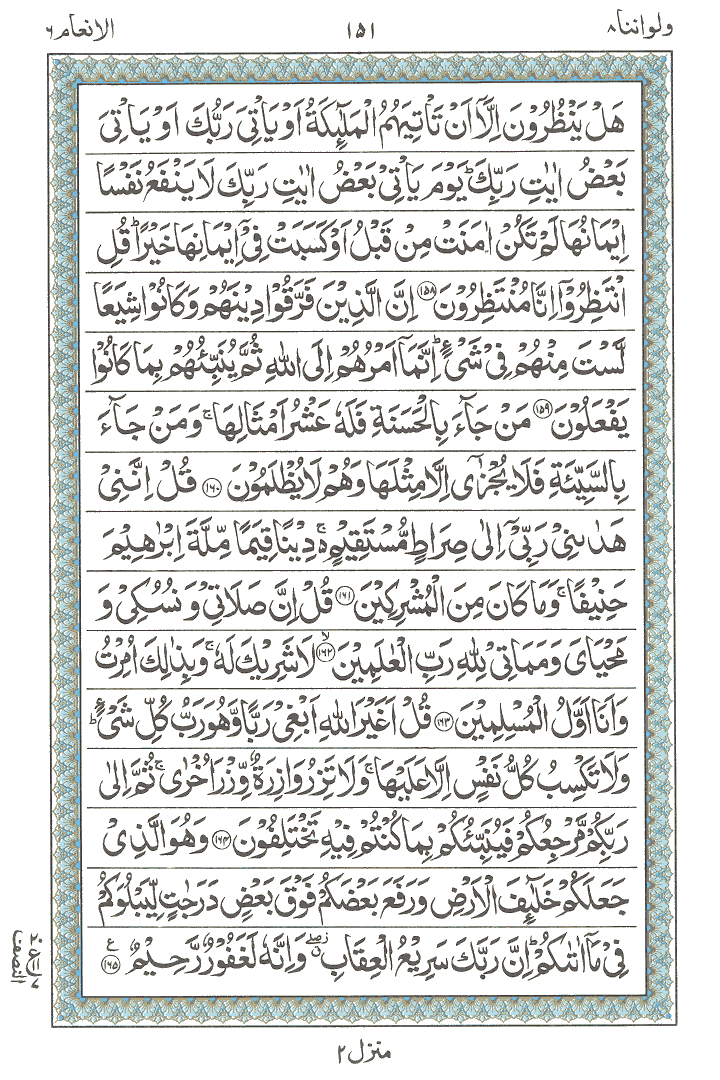 ولواننا ٨ ١٥١ الانعام ٦
هَلْ يَنْظُرُوْنَ اِلَّاۤ اَنْ تَاْتِيَهُمُ الْمَلٰٓئِكَةُ اَوْ يَاْتِىَ رَبُّكَ اَوْ يَاْتِىَ
بَعْضُ اٰيٰتِ رَبِّكَ ؕ يَوْمَ يَاْتِىْ بَعْضُ اٰيٰتِ رَبِّكَ لَا يَنْفَعُ نَفْسًا
اِيْمَانُهَا لَمْ تَكُنْ اٰمَنَتْ مِنْ قَبْلُ اَوْ كَسَبَتْ فِىْۤ اِيْمَانِهَا خَيْرًا ؕ قُلِ
انْتَظِرُوْۤا اِنَّا مُنْتَظِرُوْنَ ﴿١٥٨﴾ اِنَّ الَّذِيْنَ فَرَّقُوْا دِيْنَهُمْ وَكَانُوْا شِيَعًا
لَّسْتَ مِنْهُمْ فِىْ شَىْءٍ ؕ اِنَّمَاۤ اَمْرُهُمْ اِلَى اللّٰهِ ثُمَّ يُنَبِّئُهُمْ بِمَا كَانُوْا
يَفْعَلُوْنَ ﴿١٥٩﴾ مَنْ جَآءَ بِالْحَسَنَةِ فَلَهٗ عَشْرُ اَمْثَالِهَا ۚ وَمَنْ جَآءَ
بِالسَّيِّئَةِ فَلَا يُجْزٰٓى اِلَّا مِثْلَهَا وَهُمْ لَا يُظْلَمُوْنَ ﴿١٦٠﴾ قُلْ اِنَّنِىْ
هَدٰٮنِىْ رَبِّىْۤ اِلٰى صِرَاطٍ مُّسْتَقِيْمٍ ۚ دِيْنًا قِيَمًا مِّلَّةَ اِبْرٰهِيْمَ
حَنِيْفًا ۚ وَمَا كَانَ مِنَ الْمُشْرِكِيْنَ ﴿١٦١﴾ قُلْ اِنَّ صَلَاتِىْ وَنُسُكِىْ وَ
مَحْيَاىَ وَمَمَاتِىْ لِلّٰهِ رَبِّ الْعٰلَمِيْنَ ۙ﴿١٦٢﴾ لَا شَرِيْكَ لَهٗ ۚ وَبِذٰلِكَ اُمِرْتُ
وَاَنَا اَوَّلُ الْمُسْلِمِيْنَ ﴿١٦٣﴾ قُلْ اَغَيْرَ اللّٰهِ اَبْغِىْ رَبًّا وَّهُوَ رَبُّ كُلِّ شَىْءٍ ؕ
وَلَا تَكْسِبُ كُلُّ نَفْسٍ اِلَّا عَلَيْهَا ۚ وَلَا تَزِرُ وَازِرَةٌ وِّزْرَ اُخْرٰى ۚ ثُمَّ اِلٰى
رَبِّكُمْ مَّرْجِعُكُمْ فَيُنَبِّئُكُمْ بِمَا كُنْتُمْ فِيْهِ تَخْتَلِفُوْنَ ﴿١٦٤﴾ وَهُوَ الَّذِىْ
جَعَلَكُمْ خَلٰٓئِفَ الْاَرْضِ وَرَفَعَ بَعْضَكُمْ فَوْقَ بَعْضٍ دَرَجٰتٍ لِّيَبْلُوَكُمْ
فِىْ مَاۤ اٰتٰٮكُمْ ؕ اِنَّ رَبَّكَ سَرِيْعُ الْعِقَابِ ۖ وَاِنَّهٗ لَغَفُوْرٌ رَّحِيْمٌ ﴿١٦٥﴾ ع
النصف
منزل ٢